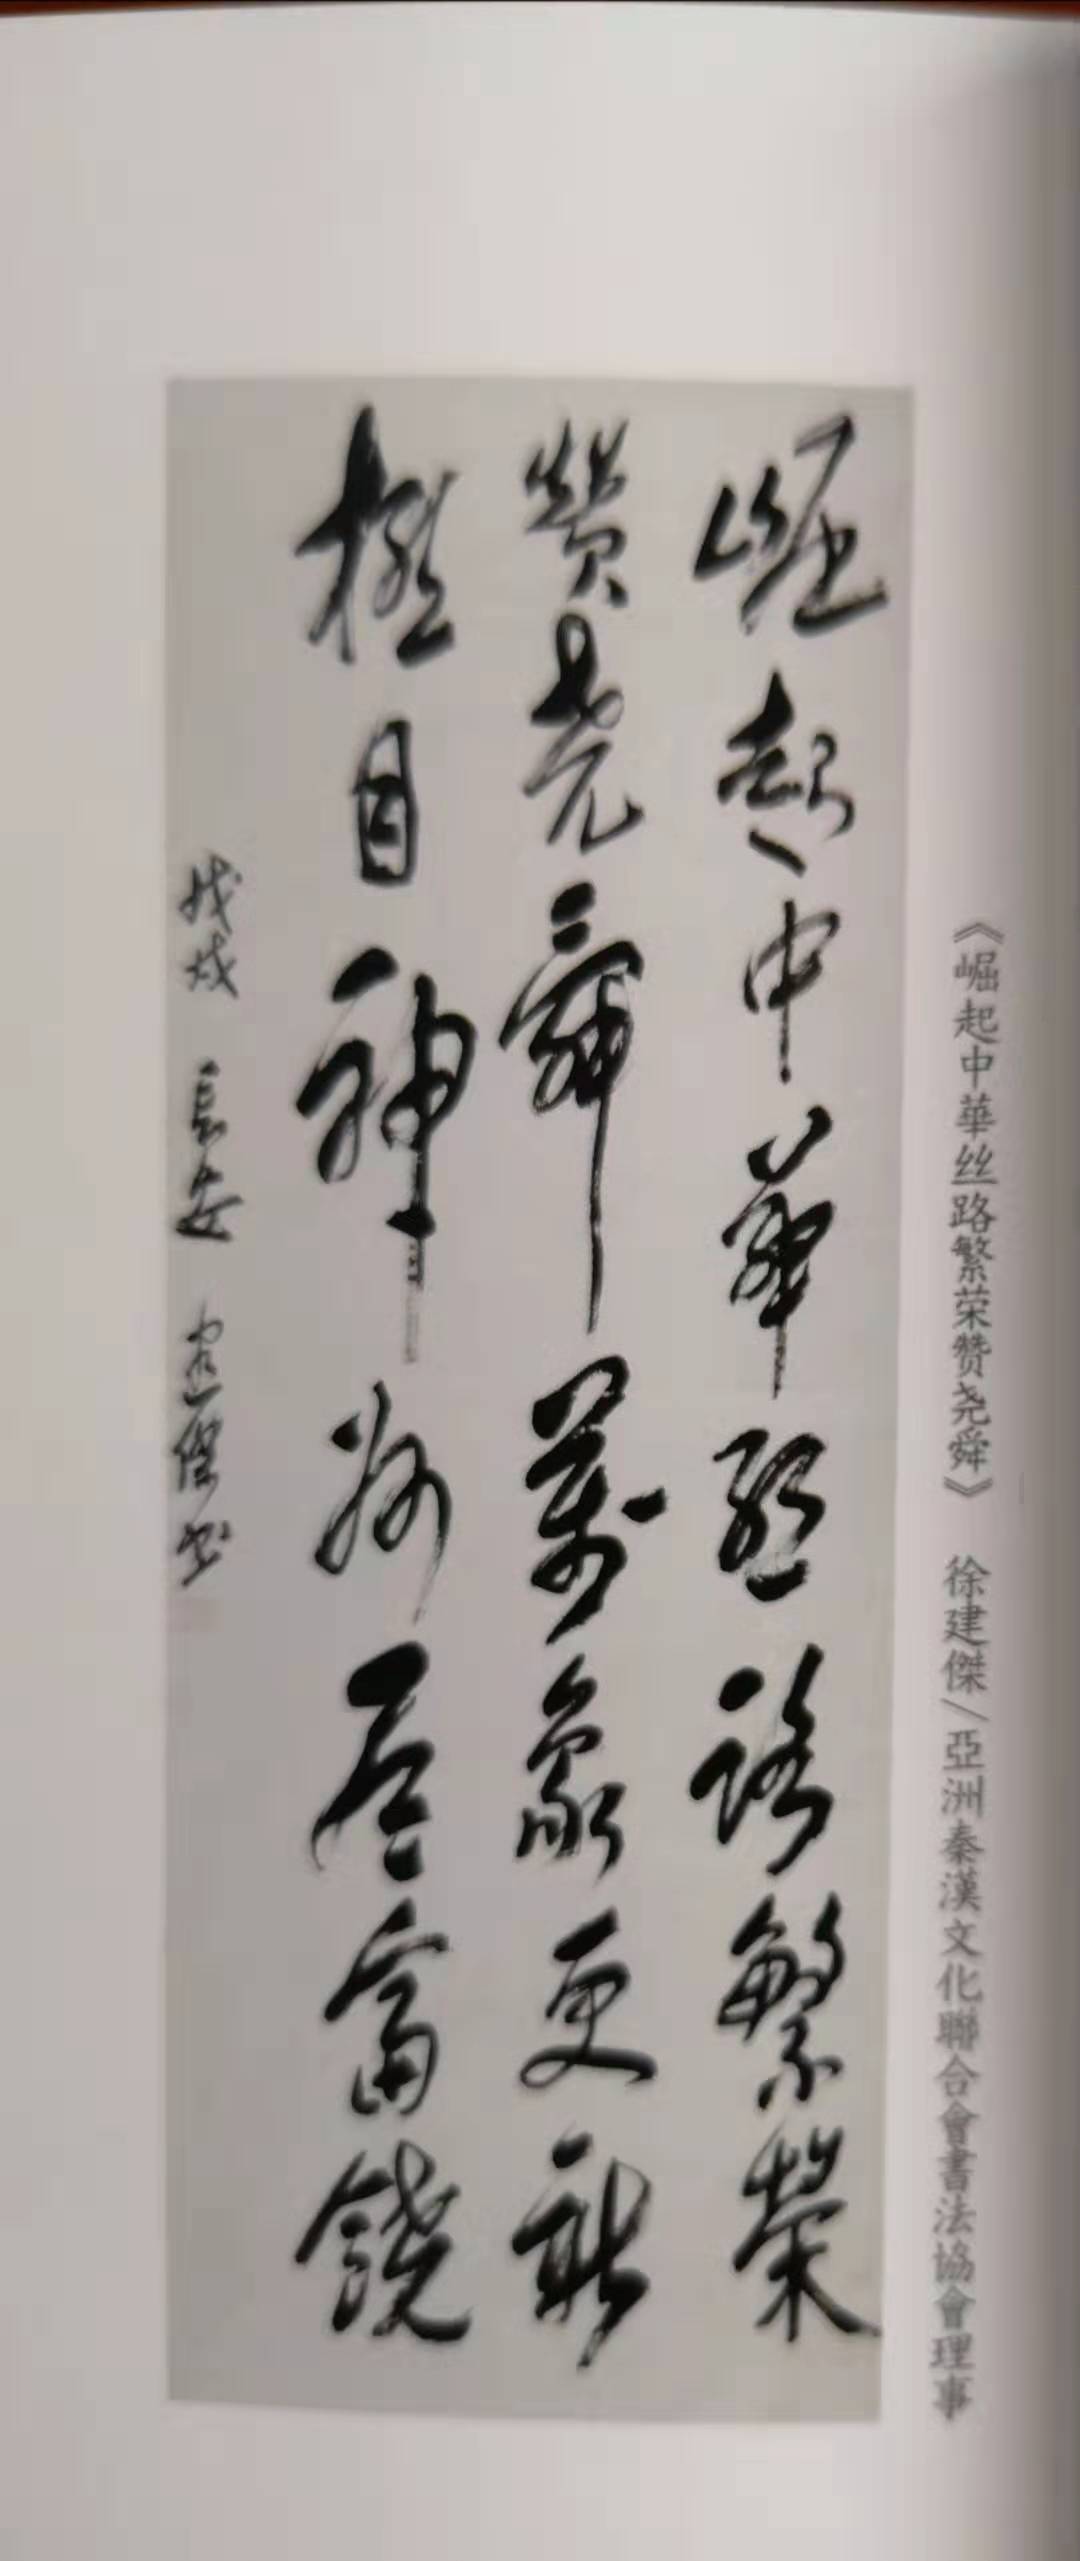 《崛起中華丝路繁荣赞尧舜》 徐建傑/亞洲秦漢文化聯合會書法協會理事
崛起中華丝路繁榮
贊尧舜萬象更新
極目神州富饒
戊戌 長安 建傑书